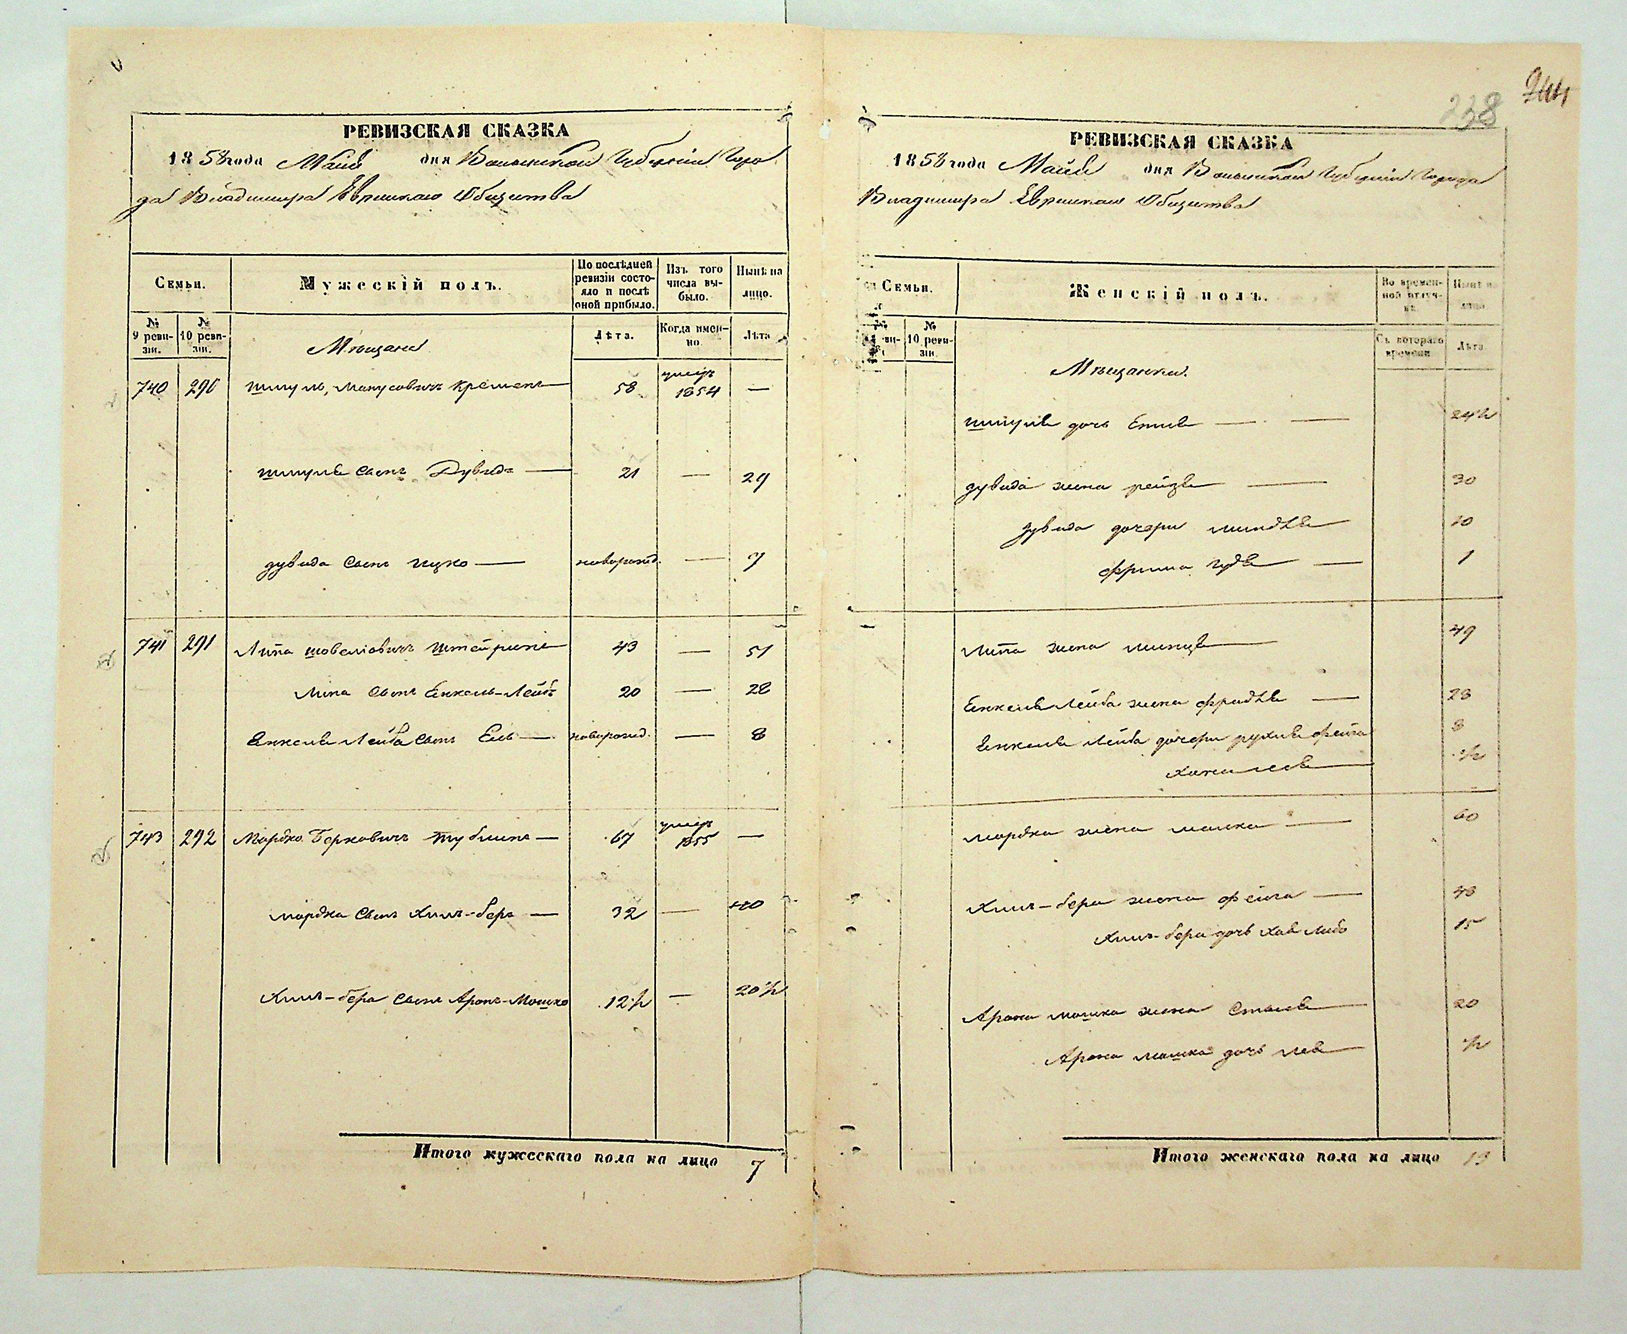 244
238
РЕВИЗСКАЯ СКАЗКА
1858 года Майя дня Волынской Губерніи Горо
да Владимира Еврейскаго Общества
Семьи.
Мужескій полъ.
По послѣдней ревизіи состояло и послѣ оной прибыло.
Изъ того числа выбыло.
Нынѣ на лицо.
№ 9 ревизіи.
№ 10 ревизіи.
Лѣта.
Когда именно.
Лѣта
Мѣщане
740 290 Шмуль, Манусовичъ Кременъ 58 умеръ 1854 —
Шмуля сынъ Дувидъ — 21 — 29
дувида сынъ Ицко — новорожд. — 7
741 291 Липа Шовеліовичъ Штейрисъ 43 — 51
Липа сынъ Енкель-Лейбъ 20 — 28
Енкеля Лейба сынъ Ель — новорожд. — 8
743 292 Мордко Берковичъ — 67 умеръ 1855 —
мордка сынъ Хаимъ-беръ — 32 — 40
Хаимъ-бера сынъ Аронъ-Мошко 12 ½ — 20 ½
Итого мужескаго пола на лицо 7
РЕВИЗСКАЯ СКАЗКА
1858 года Майя дня Волынской Губерніи Города
Владимира Еврейскаго Общества
Семьи.
Женскій полъ.
Во временной отлучкѣ.
Нынѣ на лицо.
№ 10 ревизіи.
Съ котораго времени
Лѣта.
Мѣщанки.
шмуля дочь Етля — — 24 ½
дувида жена рейзя — 30
дувида дочери миндля 10
фрима гудя — 1
Липа жена 49
Енкеля Лейба жена фрадля — 28
Енкеля Лейба дочери рухля фейга 8
Хана лея ½
мордка жена малка — 60
Хаимъ-бера жена фейга — 43
Хаимъ-бера дочь Хая либа 15
Арона мошка жена Стыся 20
Арона мошка дочь лея ½
Итого женскаго пола на лицо 13